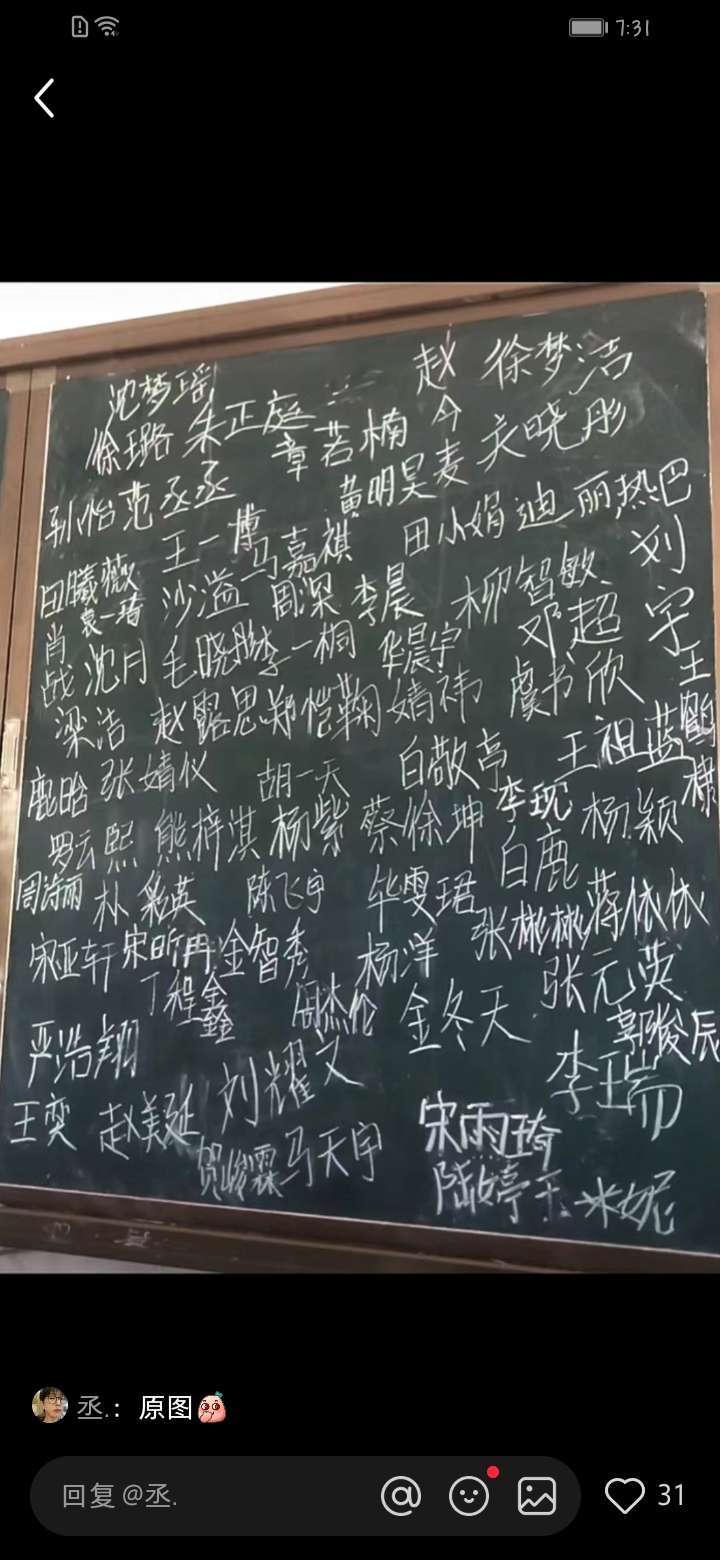 7:31
沈梦瑶 赵今 徐梦洁
徐璐 朱正庭 章若楠 关晓彤
孙怡 范丞丞 黄明昊 麦
王一博 马嘉祺 田小娟 迪丽热巴
田曦薇 沙溢 周深 李晨 柳智敏 刘宇
袁一琦
肖战 沈月 毛晓彤 李一桐 华晨宇 邓超
梁洁 赵露思 郑恺 鞠婧祎 虞书欣 王鹤棣
张婧仪 胡一天 白敬亭 王祖蓝
罗云熙 熊梓淇 杨紫 蔡徐坤 李现 杨颖
周诗雨 朴彩英 陈飞宇 毕雯珺 白鹿
宋亚轩 宋昕冉 金智秀 杨洋 张彬彬 蒋依依
丁程鑫 周杰伦 金冬天 张元英
严浩翔 刘耀文 李瑞 郭俊辰
王奕 赵美延 宋雨琦
贺峻霖 马天宇 陆婷玉 米妮
丞.：原图
回复 @丞. 31